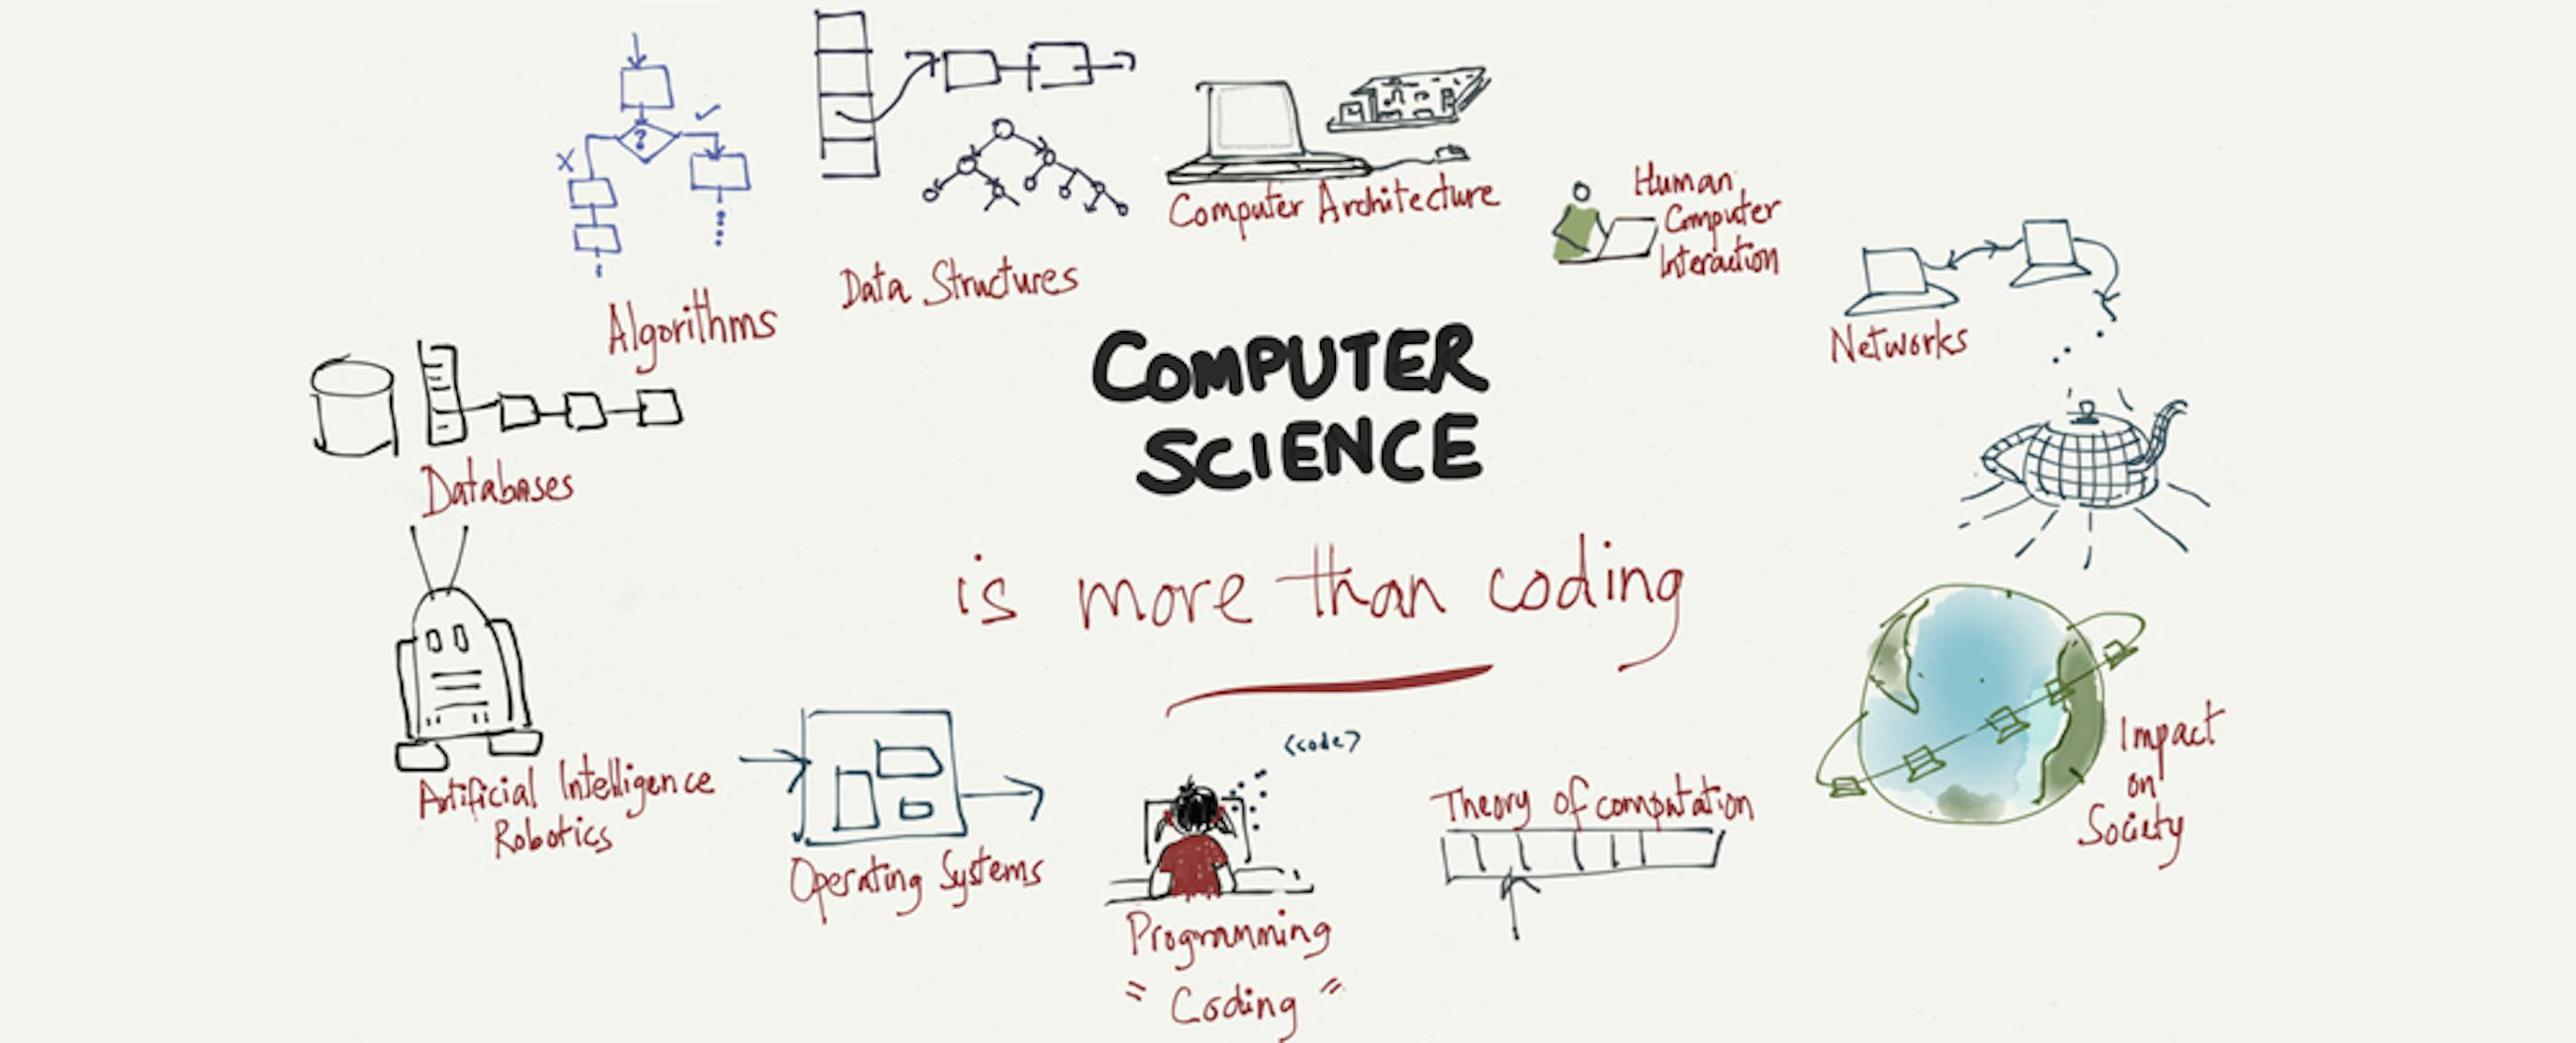 Computer Architecture
Human
Computer
Interaction
Data Structures
Algorithms
Networks
COMPUTER
SCIENCE
is more than coding
?
Databases
Artificial Intelligence
Robotics
Operating Systems
<code>
Programming
" Coding "
Theory of computation
Impact
on
Society